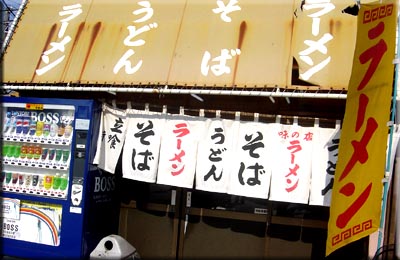 ラーメン
うどん
そば
ラーメン
ラーメン
BOSS
立喰
そば
ラーメン
うどん
そば
味の店
ラーメン
うどん
BOSS
BOSS